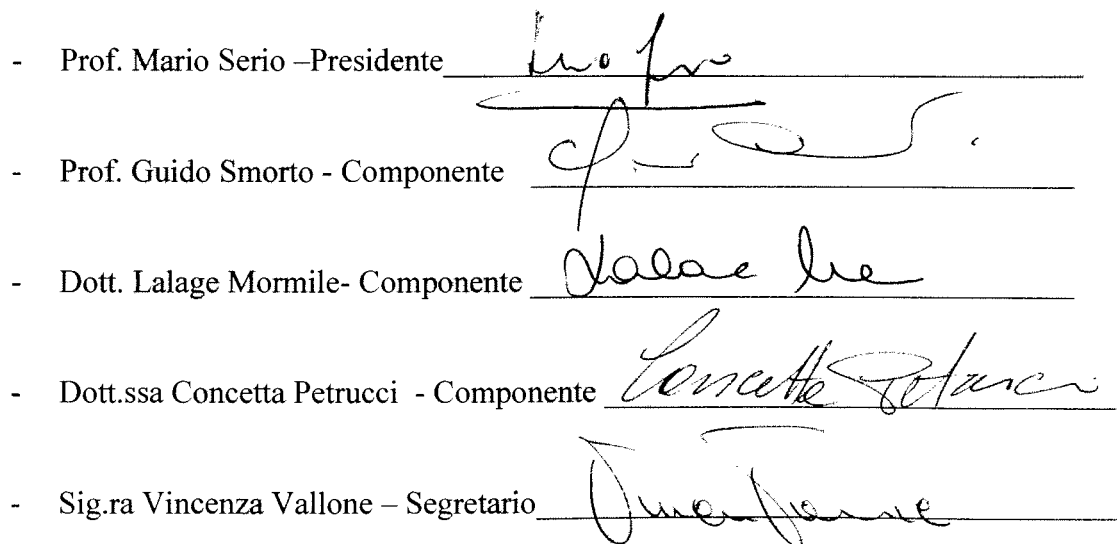 - Prof. Mario Serio –Presidente
- Prof. Guido Smorto - Componente
- Dott. Lalage Mormile- Componente
- Dott.ssa Concetta Petrucci - Componente Concetta Petrucci
- Sig.ra Vincenza Vallone – Segretario